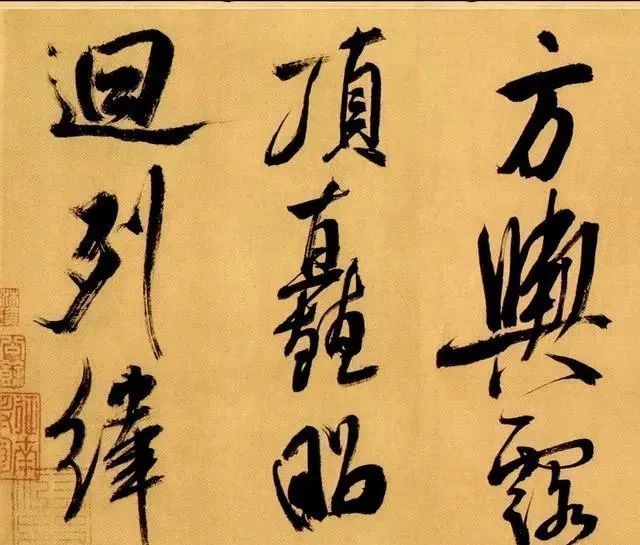 方輿露
頂矗昭
迴列緯